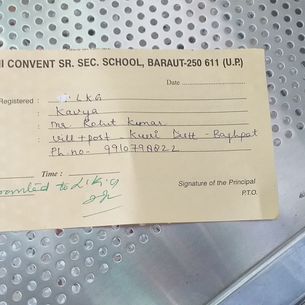 I CONVENT SR. SEC. SCHOOL, BARAUT-250 611 (U.P.)
Date
Registered : LKG
: Kavya
: Mr. Rohit Kumar
: Vill + post - Distt - Baghpat
Ph. no -
Time :
to L.K.G
Signature of the Principal
P.T.O.